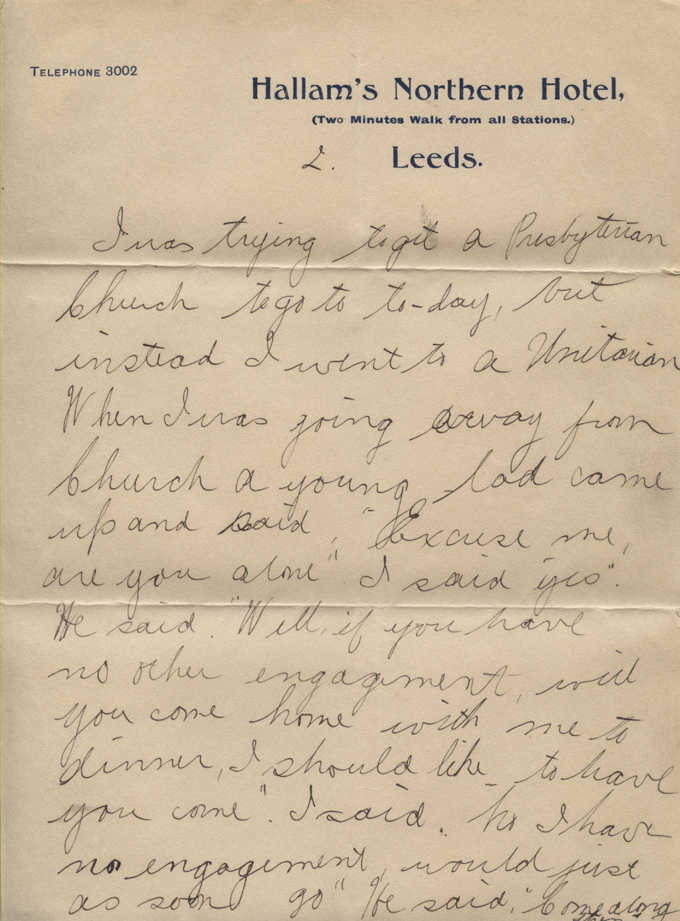 TELEPHONE 3002
Hallam's Northern Hotel,
(Two Minutes Walk from all Stations.)
2. Leeds.
I was trying to get a Presbyterian
Church to go to to-day, but
instead I went to a Unitarian
When I was going away from
Church a young lad came
up and said, "Excuse me,
are you alone" I said yes".
He said. "Well, if you have
no other engagement, will
you come home with me to
dinner, I should like to have
you come". I said. "No I have
no engagement, would just
as soon go" He said, "Come along